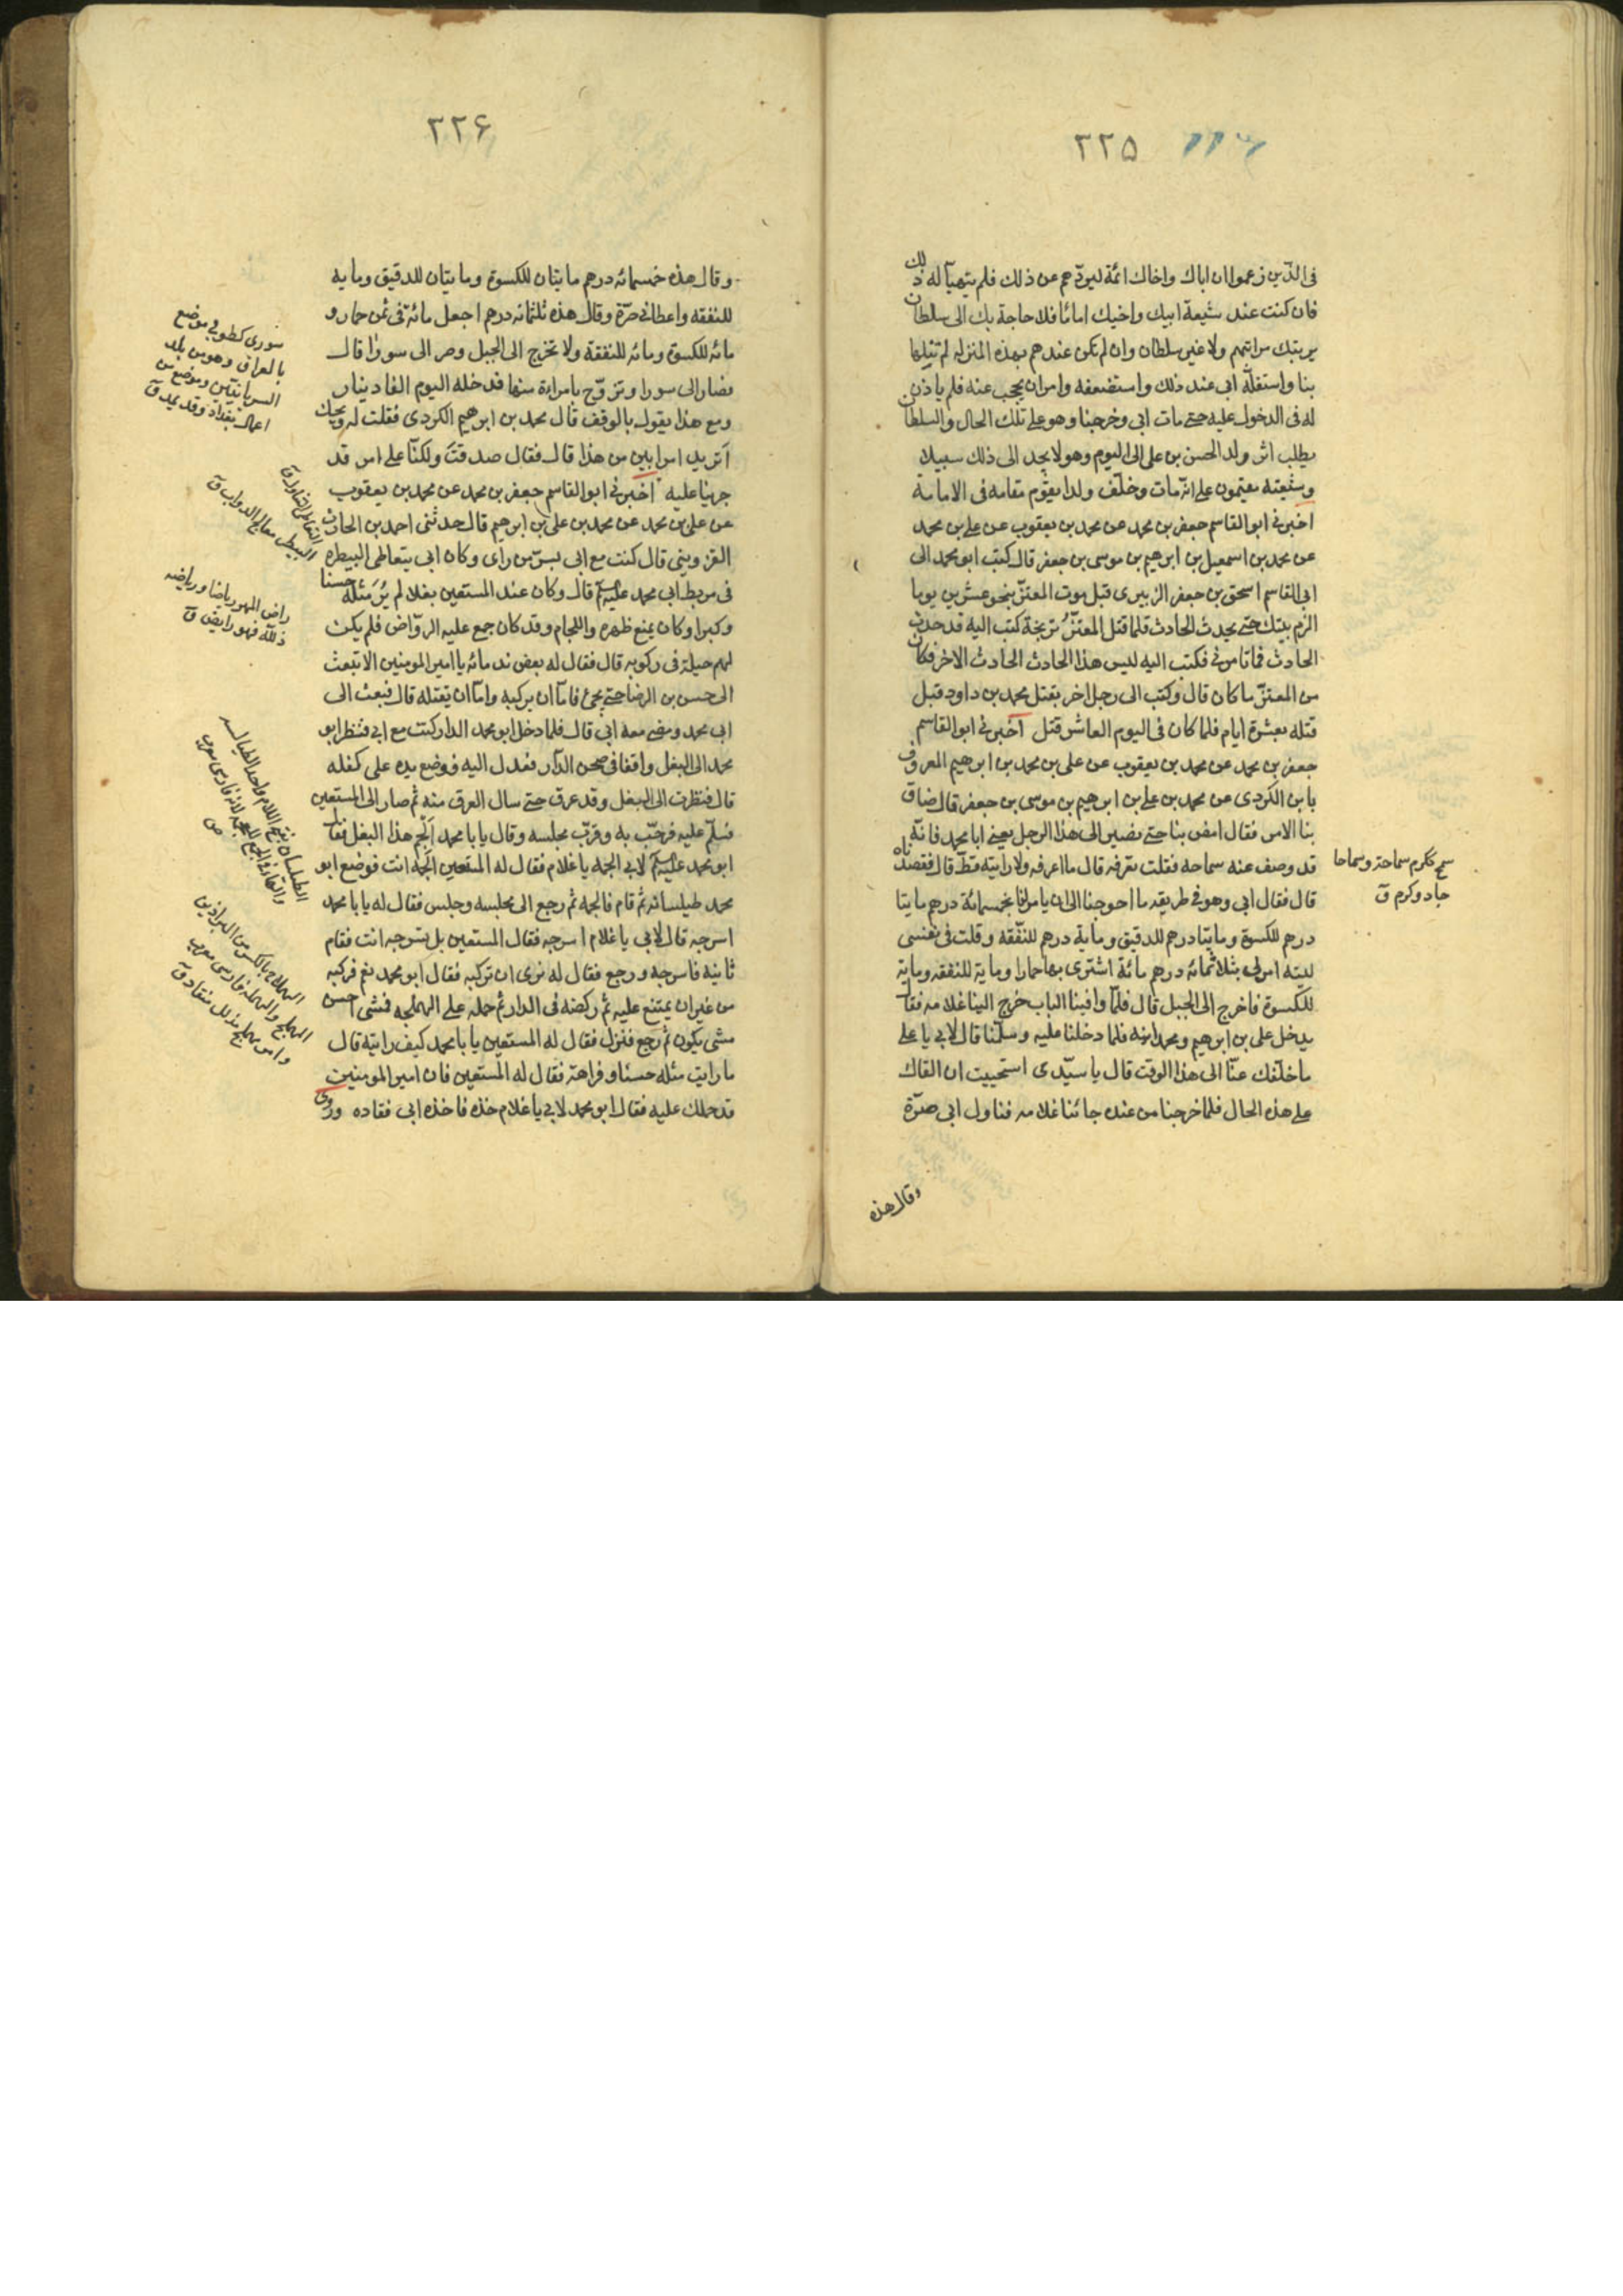 ٢٢٥
فى الذين زعموا ان اباك واخاك ائمة ليردّهم عن ذلك فلم يتهيأ له ذلك
فان كنت عند شيعة ابيك واخيك اماما فلا حاجة بك الى سلطان
يرتبك مراتبهم ولا غير سلطان وان لم تكن عندهم بهذه المنزله لم تنلها
بنا واستقلّه ابى عند ذلك واستضعفه وامر ان يحجب عنه فلم ياذن
له فى الدخول عليه حتى مات ابى وخرجنا وهو على تلك الحال والسلطان
يطلب اثر ولد الحسن بن على الى اليوم وهو لا يجد الى ذلك سبيلا
وشيعته مقيمون على انه مات وخلّف ولدا يقوم مقامه فى الامامة
اخبرنى ابو القاسم جعفر بن محمد عن محمد بن يعقوب عن على بن محمد
عن محمد بن اسمعيل بن ابرهيم بن موسى بن جعفر قال كتب ابو محمد الى
ابى القاسم اسحق بن جعفر الزبيرى قبل موت المعتزّ بنحو عشرين يوما
الزم بيتك حتى يحدث الحادث فلما قتل المعتزّ تريخة كتب اليه قد حدث
الحادث فما تامرنى فكتب اليه ليس هذا الحادث الحادث الاخر فكان
من المعتزّ ما كان قال وكتب الى رجل اخر بقتل محمد بن داود قبل
قتله بعشرة ايام فلما كان فى اليوم العاشر قتل اخبرنى ابو القاسم
جعفر بن محمد عن محمد بن يعقوب عن على بن محمد بن ابرهيم المعروف
بابن الكردى عن محمد بن على بن ابرهيم بن موسى بن جعفر قال ضاق
بنا الامر فقال امض بنا حتى نصير الى هذا الرجل يعنى ابا محمد فانّه
قد وصف عنه سماحه فقلت تعرفه قال ما اعرفه ولا رايته قطّ قال فقصدناه
قال فقال ابى وهو فى طريقه ما احوجنا الى ان يامر لنا بخمسمائة درهم مايتا
درهم للكسوة ومايتا درهم للدقيق وماية درهم للنفقه وقلت فى نفسى
ليته امر لى بثلاثمائه درهم مائة اشترى بها حمارا وماية للنفقه وماية
للكسوة فاخرج الى الجبل قال فلمّا وافينا الباب خرج الينا غلامه فقال
يدخل على بن ابرهيم ومحمد ابنه فلما دخلنا عليه وسلّمنا قال لابى يا على
ما خلّفك عنّا الى هذا الوقت قال يا سيّدى استحييت ان القاك
على هذه الحال فلما خرجنا من عنده جائنا غلامه فناول ابى صرّة
وقال هذه
سمح ككرم سماحة وسماحا
جاد وكرم ق
٢٢۶
وقال هذه خمسمائه درهم مايتان للكسوة ومايتان للدقيق وماية
للنفقه واعطانى صرّة وقال هذه ثلثمائه درهم اجعل مائة فى ثمن حمار و
مائه للكسوة ومائه للنفقة ولا تخرج الى الجبل وصر الى سورا قال
فصار الى سورا وتزوّج بامراءة منها فدخله اليوم الفا دينار
ومع هذا يقول بالوقف قال محمد بن ابرهيم الكردى فقلت له ويحك
اتريد امرا ابين من هذا قال فقال صدقت ولكنّا على امر قد
جرينا عليه اخبرنى ابو القاسم جعفر بن محمد عن محمد بن يعقوب
عن على بن محمد عن محمد بن على بن ابرهيم قال حدثنى احمد بن الحارث
القزوينى قال كنت مع ابى بسرّ من راى وكان ابى يتعاطى البيطره
فى مربط ابى محمد قال وكان عند المستعين بغلا لم يُرَ مثله حسنا
وكبرا وكان يمنع ظهره واللجام وقد كان جمع عليه الروّاض فلم يكن
لهم حيلة فى ركوبه قال فقال له بعض ندمائه يا امير المومنين الا تبعث
الى حسن بن الرضا حتى يجئ فامّا ان يركبه وامّا ان يقتله قال فبعث الى
ابى محمد ومضى معه ابى قال فلما دخل ابو محمد الدار كنت مع ابى فنظر ابو
محمد الى البغل واقفا فى صحن الدار فعدل اليه فوضع يده على كفله
قال فنظرت الى البغل وقد عرق حتى سال العرق منه ثم صار الى المستعين
فسلّم عليه فرحّب به وقرّب مجلسه وقال يا با محمد الجم هذا البغل فقال
ابو محمد لابى الجمه يا غلام فقال له المستعين الجمه انت فوضع ابو
محمد طيلسانه ثم قام فالجمه ثم رجع الى مجلسه وجلس فقال له يا با محمد
اسرجه قال لابى يا غلام اسرجه فقال المستعين بل تسرجه انت فقام
ثانية فاسرجه ورجع فقال له نرى ان تركبه فقال ابو محمد نعم فركبه
من غير ان يمتنع عليه ثم ركضه فى الدار ثم حمله على الهملجه فمشى احسن
مشى يكون ثم رجع فنزل فقال له المستعين يا با محمد كيف رايته قال
ما رايت مثله حسنا وفراهة فقال له المستعين فان امير المومنين
قد حملك عليه فقال ابو محمد لابى يا غلام خذه فاخذه ابى فقاده وروى
سورى كطوبى موضع
بالعراق وهو من بلد
السريانيّين وموضع من
اعمال بغداد وقد يمد ق
التعاطى التناول ق
البيطر معالج الدواب ق
راض المهر رياضا ورياضه
ذلّله فهو رايض ق
الهملاج بالكسر من البراذين
الهملج والهملجه فارسى معرب
وامر مهملج مذلل منقاد ق